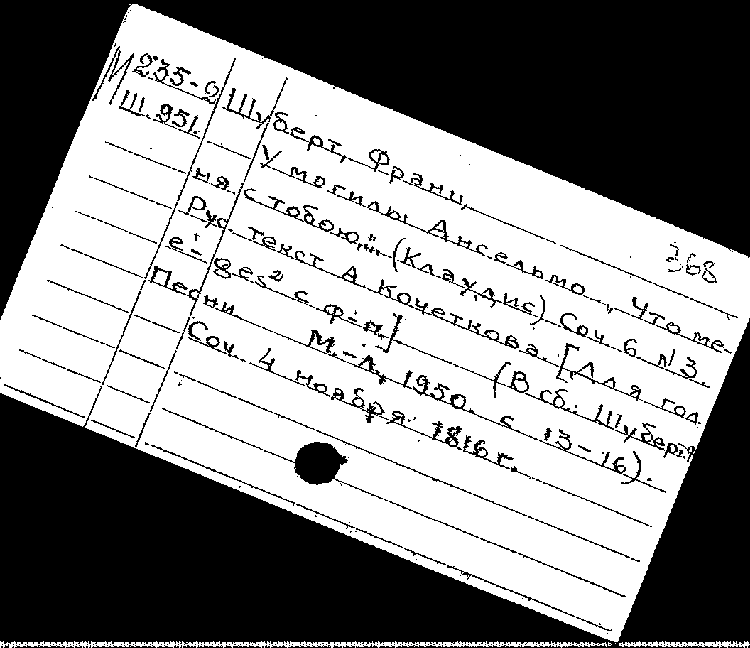 М 235-2
Ш. 951.
368
Шуберт, Франц,
У могилы Ансельмо „Что ме-
ня с тобою..." (Клаудис) Соч. 6 №3.
Рус. текст А. Кочеткова. [Для гол.
e¹-ges² с ф-п.] (В сб.: Шуберт.Ф.
Песни М.-Л., 1950. с 13-16).
Соч. 4 ноября 1816 г.